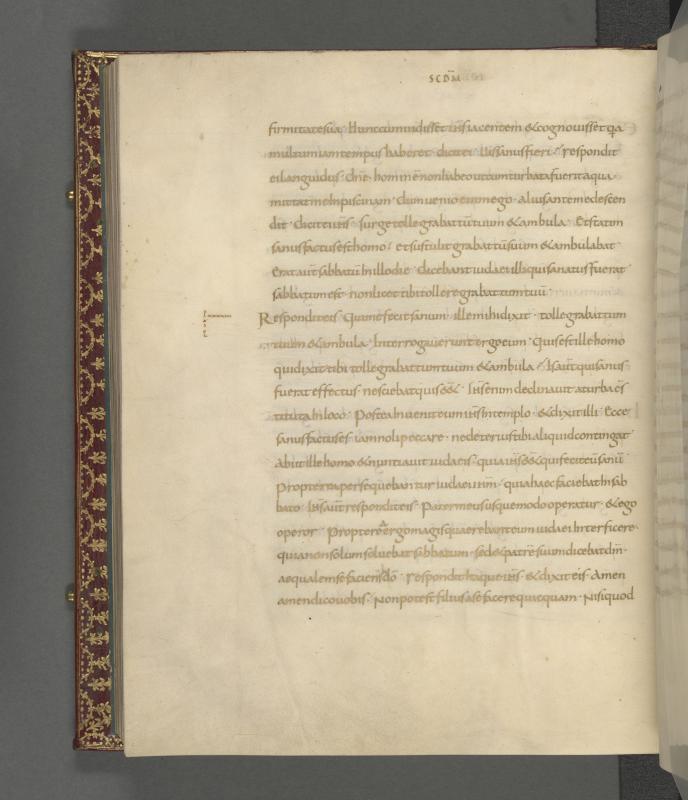 SCDM̄
firmitate sua· Hunc cum uidisset ihs iacentem & cognouisset qa
multum iam tempus haberet· dicit ei· Uis sanus fieri· respondit
ei languidus· Dn̄e· hominē non habeo ut cum turbata fuerit aqua
mittat me in piscinam· Dum uenio enim ego· alius ante me descen
dit· Dicit ei ihs· surge tolle grabattū tuum & ambula· Et statim
sanus factus est homo· et sustulit grabattū suum & ambulabat·
Erat aut̄ sabbatū in illo die· dicebant iudaei illi qui sanatus fuerat
sabbatum est· non licet tibi tollere grabattum tuū·
Respondit eis· Qui me fecit sanum· ille mihi dixit· tolle grabattum
tuum & ambula· Interrogauerunt ergo eum· Quis est ille homo
qui dixit tibi tolle grabattum tuum & ambula· Is aut̄ qui sanus
fuerat effectus· nesciebat quis ess&· Ihs enim declinauit a turba cōs
tituta in loco· Postea inuenit eum ihs in templo· & dixit illi· Ecce
sanus factus es· iam noli peccare· ne deterius tibi aliquid contingat
Abiit ille homo & nuntiauit iudaeis· quia ihs ess& qui fecit eū sanū
Propterea persequebantur iudaei ihm· quia haec faciebat in sab
bato· Ihs aut̄ respondit eis· Pater meus usque modo operatur· & ego
operor· Propterea ergo magis quaerebant eum iudaei interficere·
quia non solum soluebat sabbatum· sed & patrē suum dicebat dm̄·
aequalem se faciens dō· respondit itaque ihs· & dixit eis· Amen
amen dico uobis· Non potest filius a se facere quicquam· Nisi quod